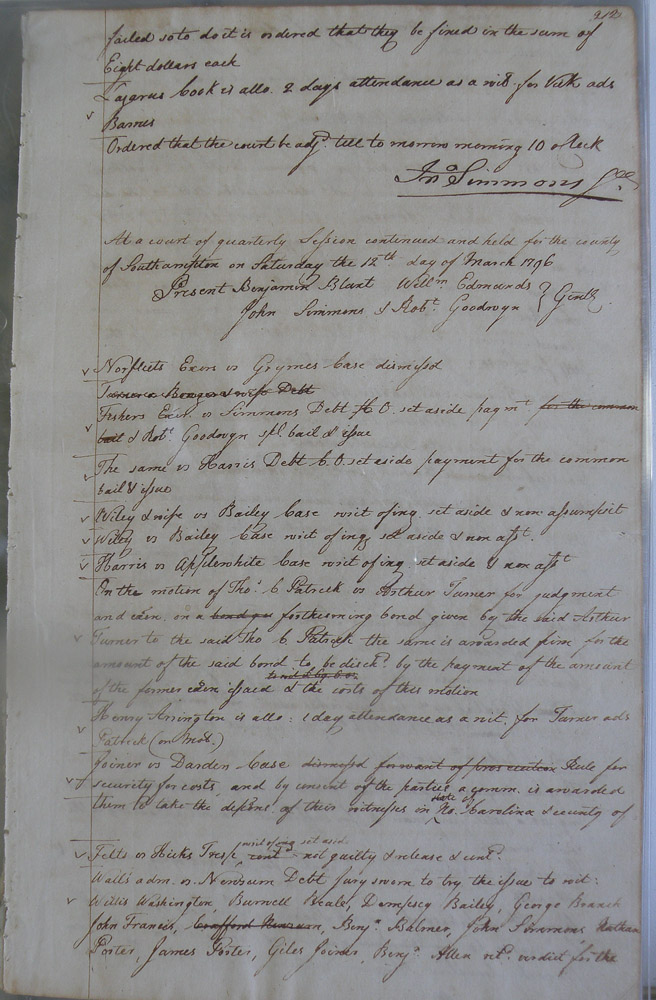 212
failed so to do it is ordered that they be fined in the sum of
Eight dollars each
Lazarus Cook is allo. 2 days attendance as a wit. for Vick ads
Barnes
Ordered that the court be adj. till to morrow morning 10 oClock
Jno Simmons
At a court of quarterly Session continued and held for the county
of Southampton on Saturday the 12th day of March 1796
Present Benjamin Blunt Willm Edmunds } Gentl.
John Simmons & Robt. Goodwyn
Norfleets Exors vs Grymes Case dismissed
Turner & wife Debt
Fishers Exor. vs Simmons Debt C. O. set aside paymt for the common
bail & Robt. Goodwyn spl. bail & issue
The same vs Harris Debt C. O. set aside payment for the common
bail & issue
Wiley & wife vs Bailey Case writ of inq. set aside & non assumpsit
Wiley vs Bailey Case writ of inq. set aside & non asst.
Harris vs Applewhite Case writ of inq. set aside & non asst
On the motion of Tho. C Patrick vs Arthur Turner for judgment
and exon. on a bond forthcoming bond given by the said Arthur
Turner to the said Tho C Patrick the same is awarded him for the
amount of the said bond to be disch. by the payment of the amount
of the former exon issued & the costs of this motion
Henry Arrington is allo: 1 day attendance as a wit. for Turner ads
Patrick (on mot.)
Joiner vs Darden Case dismissed for want of prosecution Rule for
security for costs, and by consent of the parties a comm. is awarded
them to take the depons. of their witnesses in state of No. Carolina & county of
Felts vs Hicks Tresp. writ of inq set aside not guilty & release & cont.
Wails adm. vs Newsum Debt Jury sworn to try the issue to wit:
Willis Washington, Burwell Beale, Dempsey Bailey, George Branch
John Francis, Crafford Newsum, Benja. Balmer, John Simmons Nathan
Porter, James Porter, Giles Joiner, Benja. Allen retd. verdict for the